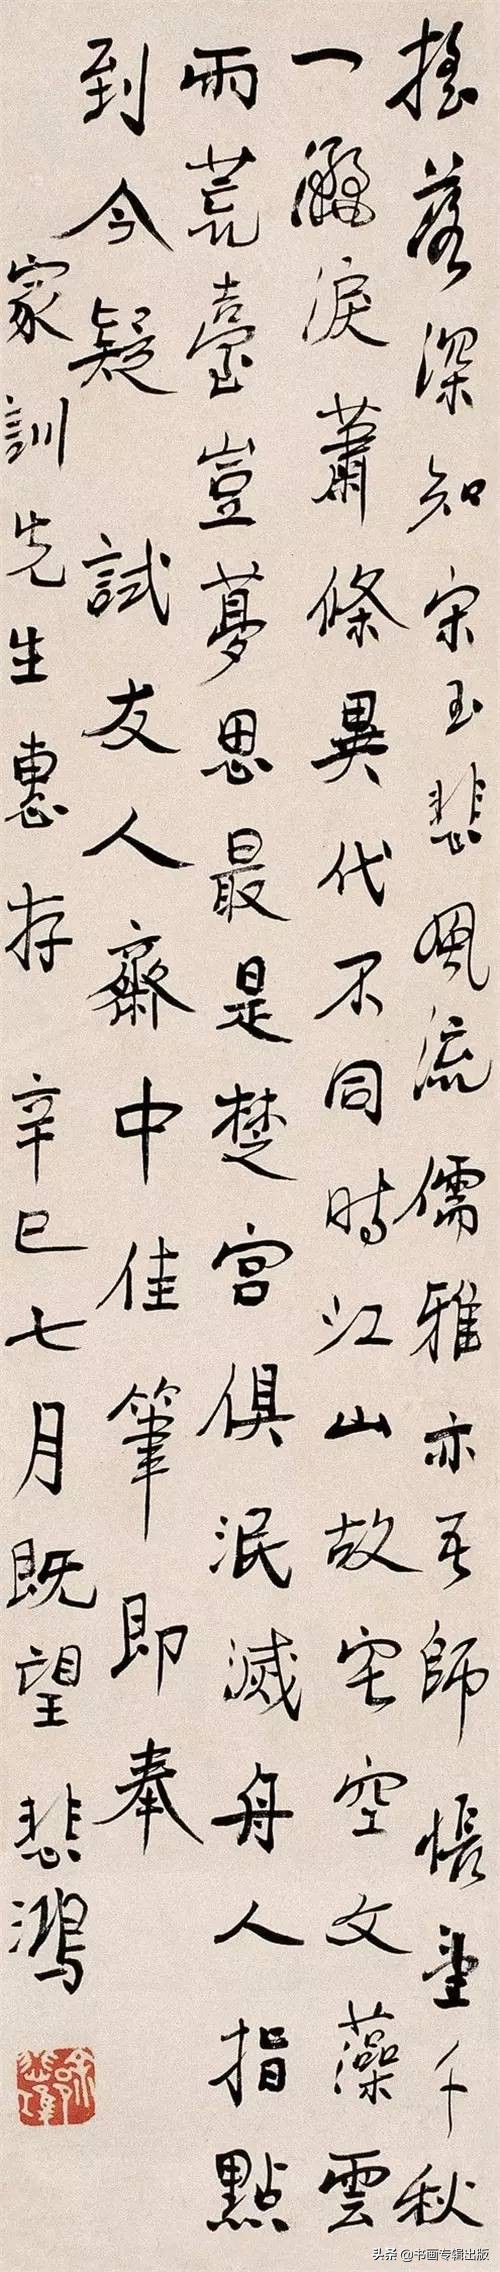 搖落深知宋玉悲風流儒雅亦吾師悵望千秋
一灑淚蕭條異代不同時江山故宅空文藻雲
雨荒臺豈夢思最是楚宮俱泯滅舟人指點
到今疑 試友人齋中佳筆即奉
家訓先生惠存 辛巳七月既望 悲鴻
头条 @书画专辑出版